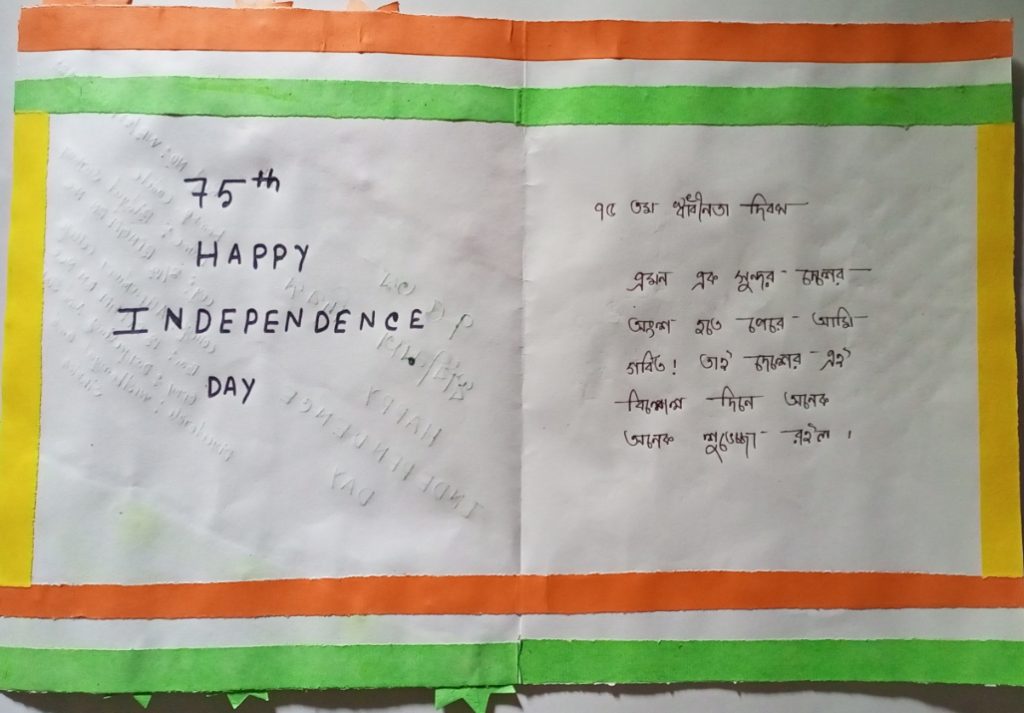 75th
HAPPY
INDEPENDENCE
DAY
৭৫ তম স্বাধীনতা দিবস
এমন এক সুন্দর দেশের
অংশ হতে পেরে আমি
গর্বিত! তাই দেশের এই
বিশেষ দিনে অনেক
অনেক শুভেচ্ছা রইল।